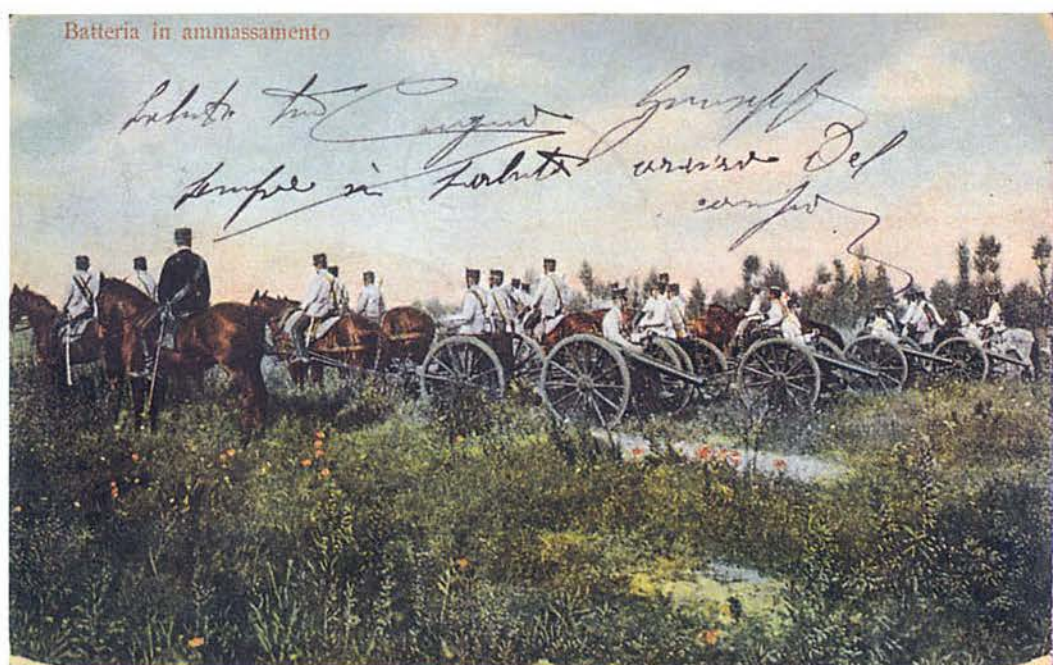 Batteria in ammassamento
Saluta tuo Cugino Giuseppe
sempre in saluta Del
campo